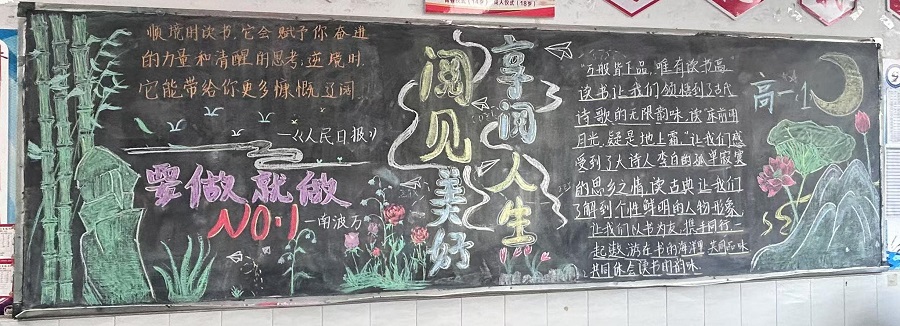 顺境时读书,它会赋予你奋进
的力量和清醒的思考,逆境时,
它能带给你更多慷慨辽阔
—《人民日报》
要做就做
NO:1
—南波万
阅见美好
享阅人生
"万般皆下品,唯有读书高"
读书让我们领悟到了古代
诗歌的无限韵味,读"床前明
月光,疑是地上霜"让我们感
受到了大诗人李白的孤单寂寞
的思乡之情,读古典让我们
了解到个性鲜明的人物形象,
让我们以书为友,携手同行,一
起遨游在书的海洋里,共同品味
共同体会读书的韵味
高一、1